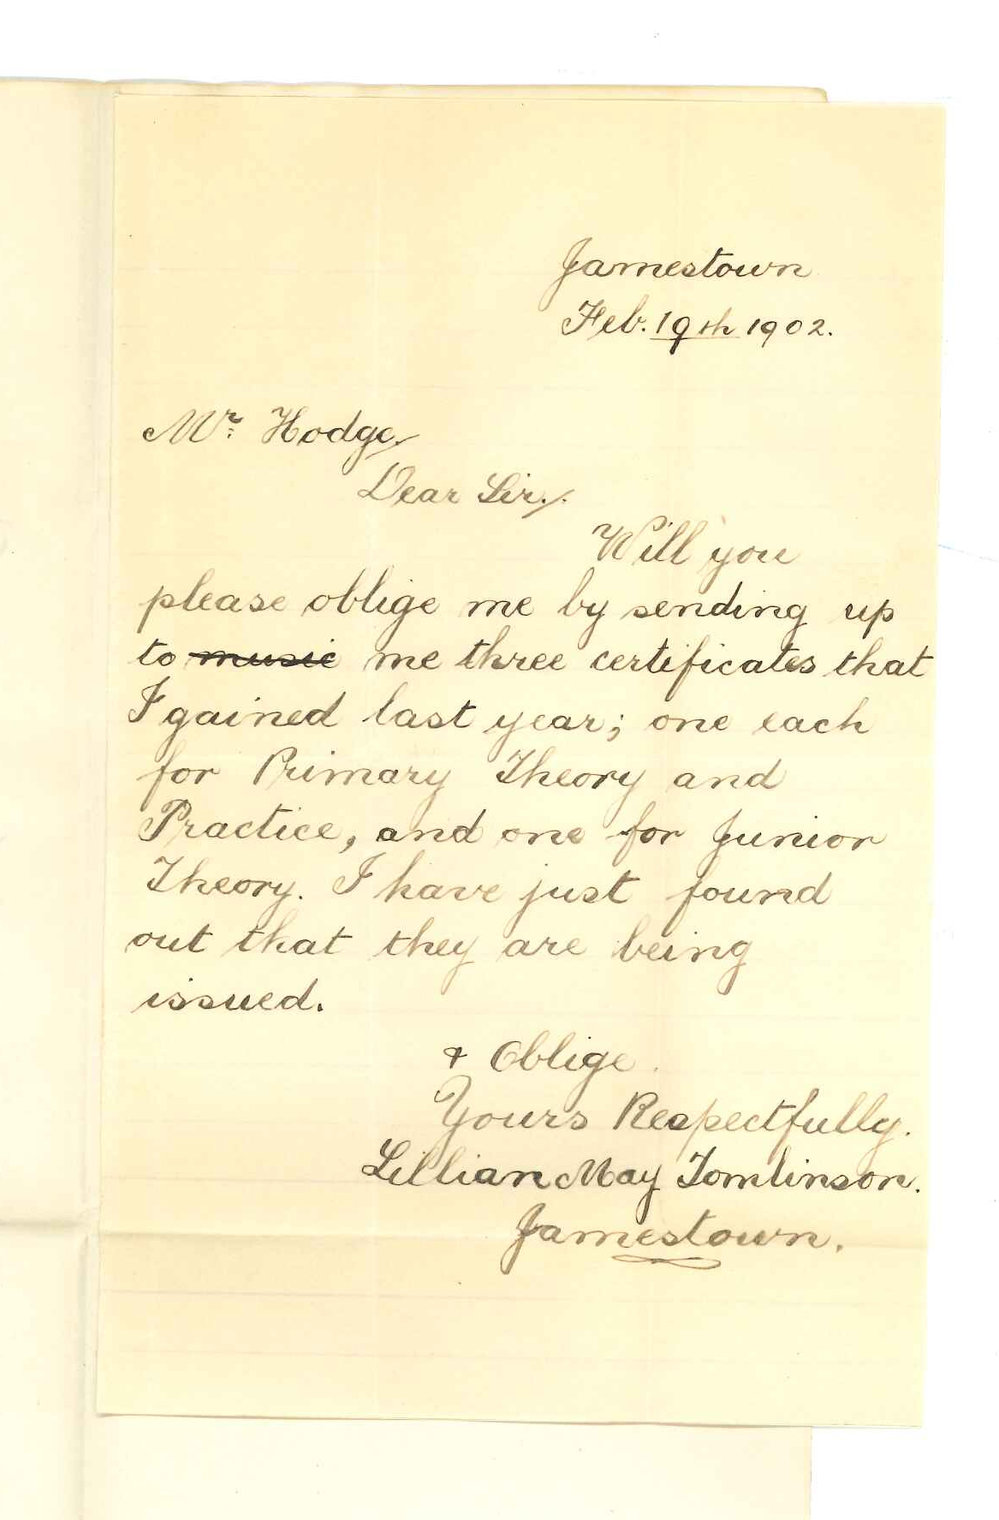 Jamestown
Feb. 19th 1902.
Mr. Hodge,
Dear Sir,.
Will you
please oblige me by sending up
to music me three certificates that
I gained last year; one each
for Primary Theory and
Practice, and one for Junior
Theory. I have just found
out that they are being
issued.
& Oblige.
Yours Respectfully.
Lillian May Tomlinson.
Jamestown.